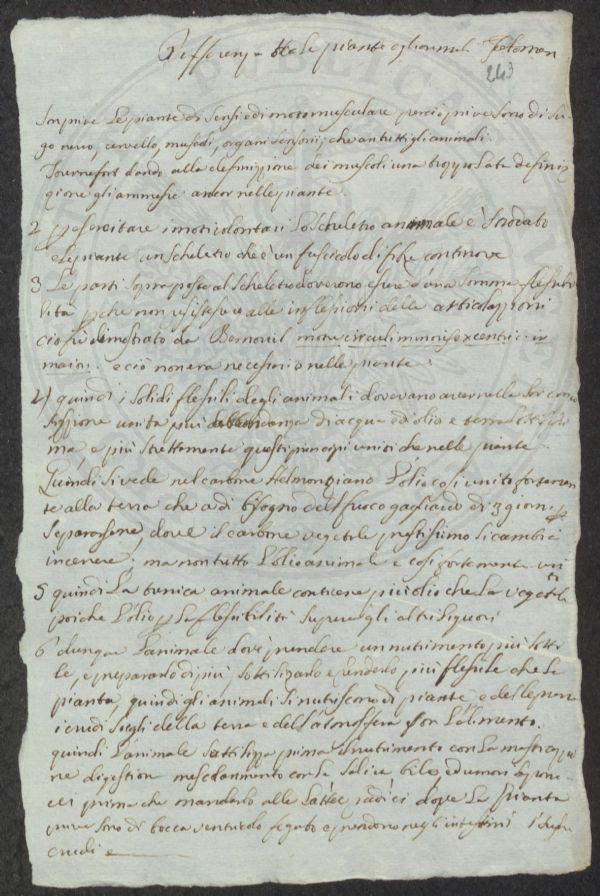 Differenza tra le piante e gli animali
243
Le piante di sensi e di moto musculare perciò prive sono di su-
go nerveo, cervello, muscoli, organi sensorij, che an tutti gli animali.
Tournefort dando alla definizzione dei muscoli una troppo lata definiz-
zione gli ammise ancor nelle piante.
2 esercitare i moti volontari lo scheletro animale è
e le piante un scheletro che è un fascicolo di fibre continove
3 Le parti soprapposte al scheletro doverono essere d'una somma flessibi-
lità pche non resistessero alle inflessioni delle articolazzioni
ciò fu dimostrato da
e ciò non era necessario nelle piante.
4 quindi i solidi flessili degli animali dovevano aver nella lor compo-
sizzione unita più abbondanza d'acqua ed olio e terra sottilissi-
ma, e più strettamente questi principi uniti che nelle piante
Quindi si vede nel carbone Helmonziano l'olio così unito fortemen-
te alla terra che a di bisogno del fuoco gagliardo di 3 giorni p
separarsene dove il carbone vegetabile prestissimo si cambia
in cenere; ma non tutto l'olio animal e così fortemente uni
to
5 quindi la tunica animale contiene più olio che la vegetabile
poiche l'olio p la flessibilità supera gli altri liquori
6 dunque l'animale dovè prendere un nutrimento più sotti-
le, e prepararlo di più, sottilizarlo e renderlo più flessile che la
pianta, quindi gli animali si nutriscono di piante, e delle piante
i crudi della terra e dell'atmosfera son l'alimento.
quindi l'animale sottilizza prima il nutrimento con la masticazzio-
ne digestion mescolamento con la saliva bile ed umori sapona-
cei prima che mandarlo alle lattee radici dove la pianta
prive sono di bocca ventricolo fegato e prendono negli intestini i sughi
crudi